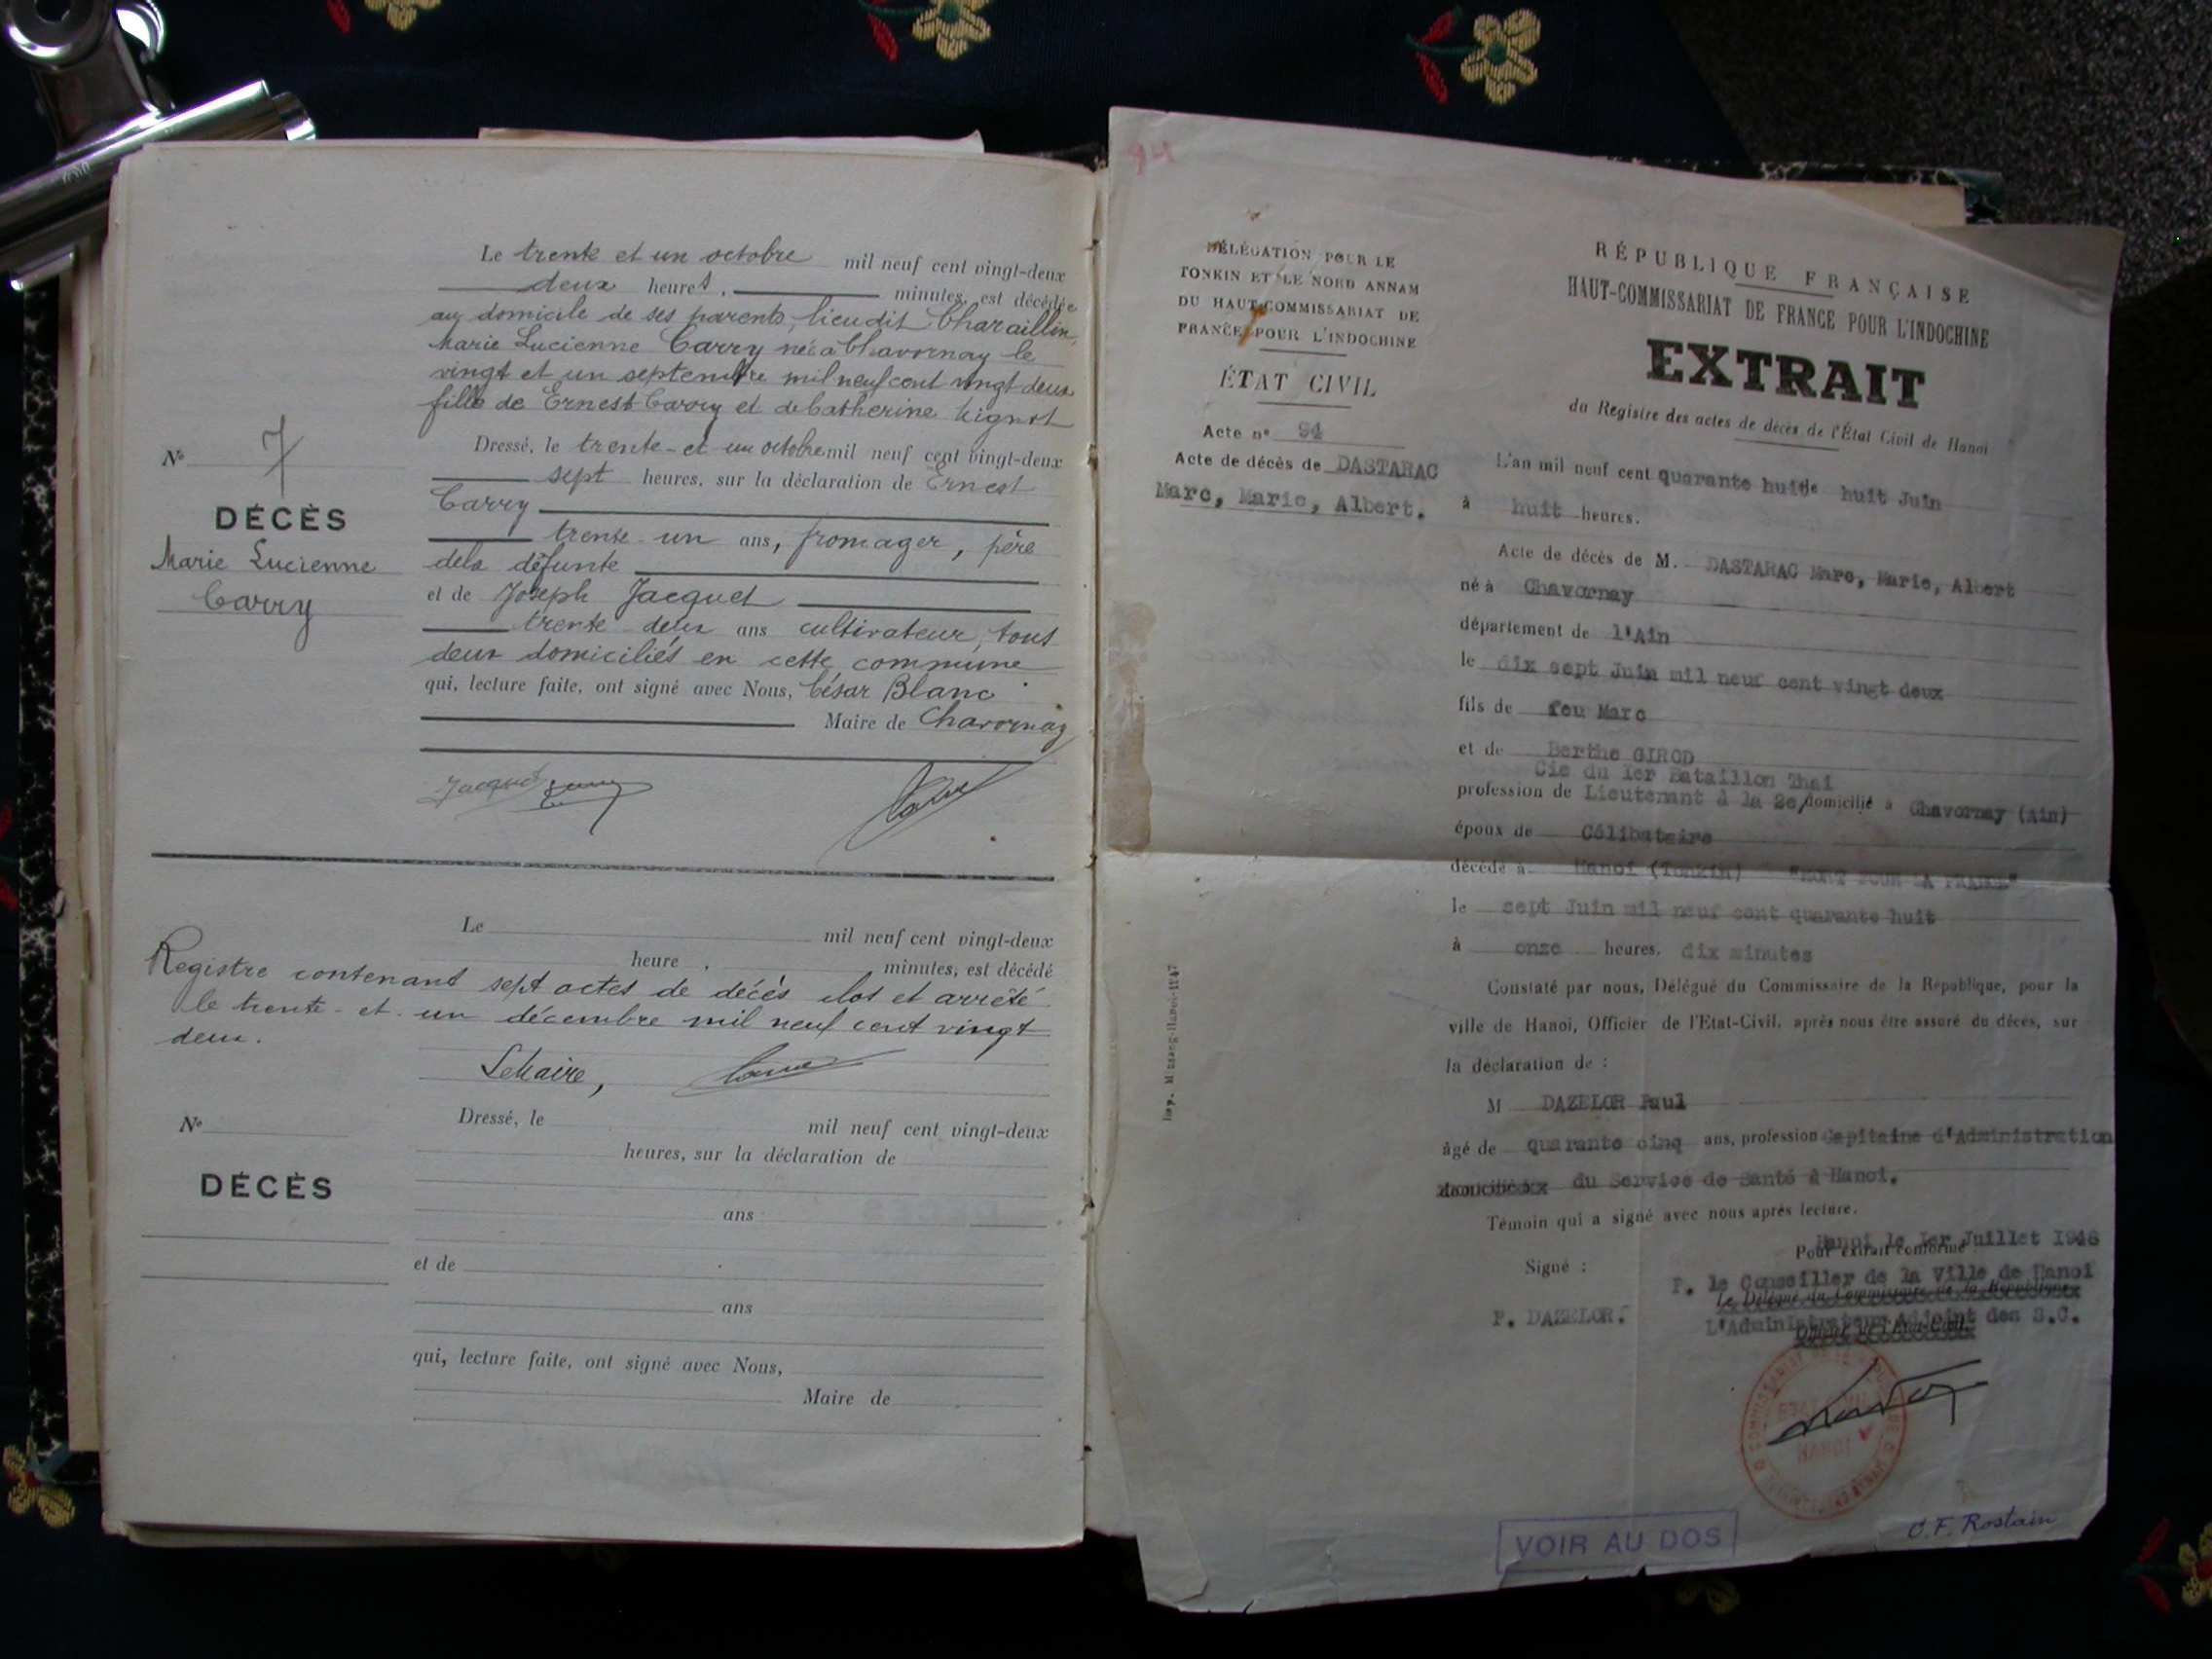 Le trente et un octobre mil neuf cent vingt-deux
deux heures, minutes, est décédée
au domicile de ses parents, lieu dit Charaillin,
Marie Lucienne Carry née à Chavornay le
vingt et un septembre mil neuf cent vingt deux
fille de Ernest Carry et de Catherine
Dressé, le trente-et un octobre mil neuf cent vingt-deux
sept heures, sur la déclaration de Ernest
Carry
trente-un ans, fromager, père
dela défunte
et de Joseph Jacquet
trente deux ans cultivateur, tous
deux domiciliés en cette commune
qui, lecture faite, ont signé avec Nous, César Blanc
Maire de Chavornay
N° 7
DÉCÈS
Marie Lucienne
Carry
Jacquet
Le mil neuf cent vingt-deux
heure , minutes, est décédé
Registre contenant sept actes de décès clos et arrêté
le trente-et-un décembre mil neuf cent vingt
deux.
Le Maire,
Dressé, le mil neuf cent vingt-deux
heures, sur la déclaration de
N°
DÉCÈS
ans
et de
ans
qui, lecture faite, ont signé avec Nous,
Maire de
94
DÉLÉGATION POUR LE
TONKIN ET LE NORD ANNAM
DU HAUT-COMMISSARIAT DE
FRANCE POUR L'INDOCHINE
ÉTAT CIVIL
Acte n° 94
Acte de décès de DASTARAC
Marc, Marie, Albert.
RÉPUBLIQUE FRANÇAISE
HAUT-COMMISSARIAT DE FRANCE POUR L'INDOCHINE
EXTRAIT
du Registre des actes de décès de l'État Civil de Hanoi
L'an mil neuf cent quarante huit le huit Juin
à huit heures.
Acte de décès de M. DASTARAC Marc, Marie, Albert
né à Chavornay
département de l'Ain
le dix sept Juin mil neuf cent vingt deux
fils de feu Marc
et de Berthe GIROD
Cie du Ier Bataillon Thai
profession de Lieutenant à la 2e/domicilié à Chavornay (Ain)
époux de Célibataire
décédé à Hanoi (Tonkin) "MORT POUR LA FRANCE"
le sept Juin mil neuf cent quarante huit
à onze heures, dix minutes
Constaté par nous, Délégué du Commissaire de la République, pour la
ville de Hanoi, Officier de l'Etat-Civil, après nous être assuré du décès, sur
la déclaration de :
M DAZELOR Paul
âgé de quarante cinq ans, profession Capitaine d'Administration
du Service de Santé à Hanoi.
Témoin qui a signé avec nous après lecture.
Hanoi le Ier Juillet 1948
Pour extrait conforme
Signé :
P. le Conseiller de la Ville de Hanoi
Le Délégué du Commissaire de la République
P. DAZELOR.
L'Administrateur Adjoint des S.C.
HANOI
VOIR AU DOS
C.F. Rostain